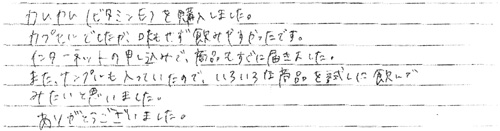 カいカい(ビタミンE)を購入しました。
カプセルでしたが、味もせず飲みやすかったです。
インターネットの申し込みで、商品もすぐに届きました。
また、サンプルも入っていたので、いろいろな商品を試しに飲んで
みたいと思いました。
ありがとうございました。